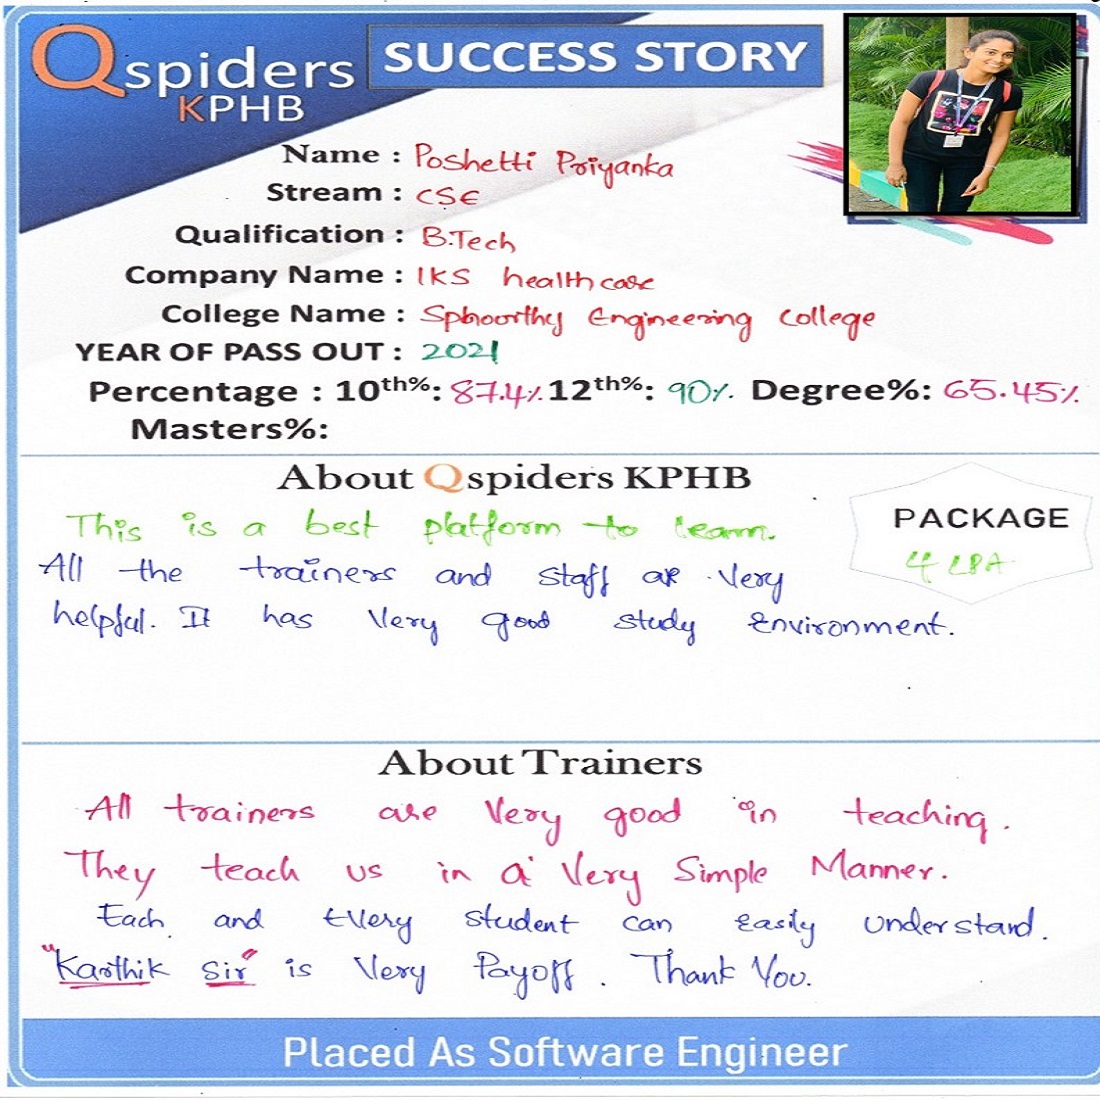 Qspiders
KPHB
SUCCESS STORY
Name : Poshetti Priyanka
Stream : CSE
Qualification : B.Tech
Company Name : IKS healthcare
College Name : Sphoorthy Engineering College
YEAR OF PASS OUT : 2021
Percentage : 10th%: 87.4% 12th%: 90% Degree%: 65.45%
Masters%:
About Qspiders KPHB
PACKAGE
4 LPA
This is a best platform to learn.
All the trainers and staff are very
helpful. It has very good study Environment.
About Trainers
All trainers are very good in teaching.
They teach us in a very Simple Manner.
Each and Every student can easily understand.
"Karthik Sir" is Very Payoff. Thank You.
Placed As Software Engineer